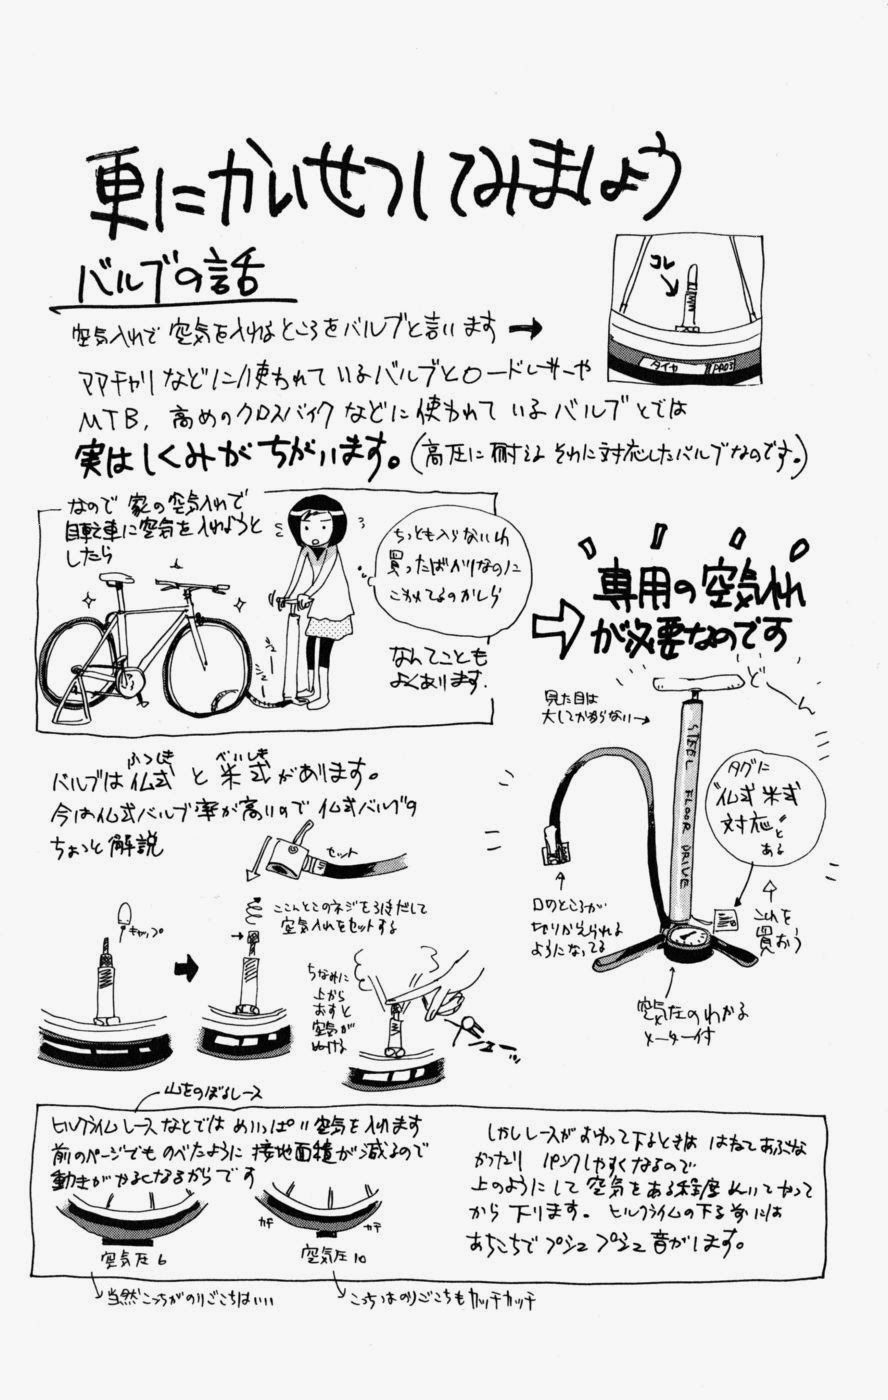 更にかいせつしてみましょう
バルブの話
空気入れで空気を入れるところをバルブと言います
コレ
タイヤ
ママチャリなどに使われているバルブとロードレーサーや
MTB, 高めのクロスバイクなどに使われているバルブとでは
実はしくみがちがいます。(高圧に耐えるそれに対応したバルブなのです。)
なので家の空気入れで
自転車に空気を入れようと
したら
ちっとも入らないわ
買ったばかりなのに
こわれてるのかしら
なんてことも
よくあります。
専用の空気入れ
が必要なのです
見た目は
大してかわらない
どーん
STEEL FLOOR DRIVE
タグに
"仏式米式
対応"と
ある
これを
買おう
口のところが
切りかえられる
ようになってる
空気圧のわかる
メーター付
ふつしき
べいしき
バルブは仏式と米式があります。
今は仏式バルブ率が高いので仏式バルブの
ちょっと解説
セット
キャップ
ここんとこのネジをゆるめて
空気入れをセットする
ちなみに
上から
おすと
空気が
ぬける
山をのぼるレース
ヒルクライムレースなどではめいっぱい空気を入れます
前のページでものべたように接地面積が減るので
動きがかるくなるからです
空気圧6
カチ
カチ
空気圧10
しかしレースがおわって下るときははねてあぶな
かったりパンクしやすくなるので
上のようにして空気をある程度ぬいてやって
から下ります。ヒルクライムの下る前には
あちこちでプシュプシュ音がします。
当然こっちがのりごこちはいい
こっちはのりごこちもカッチカッチ